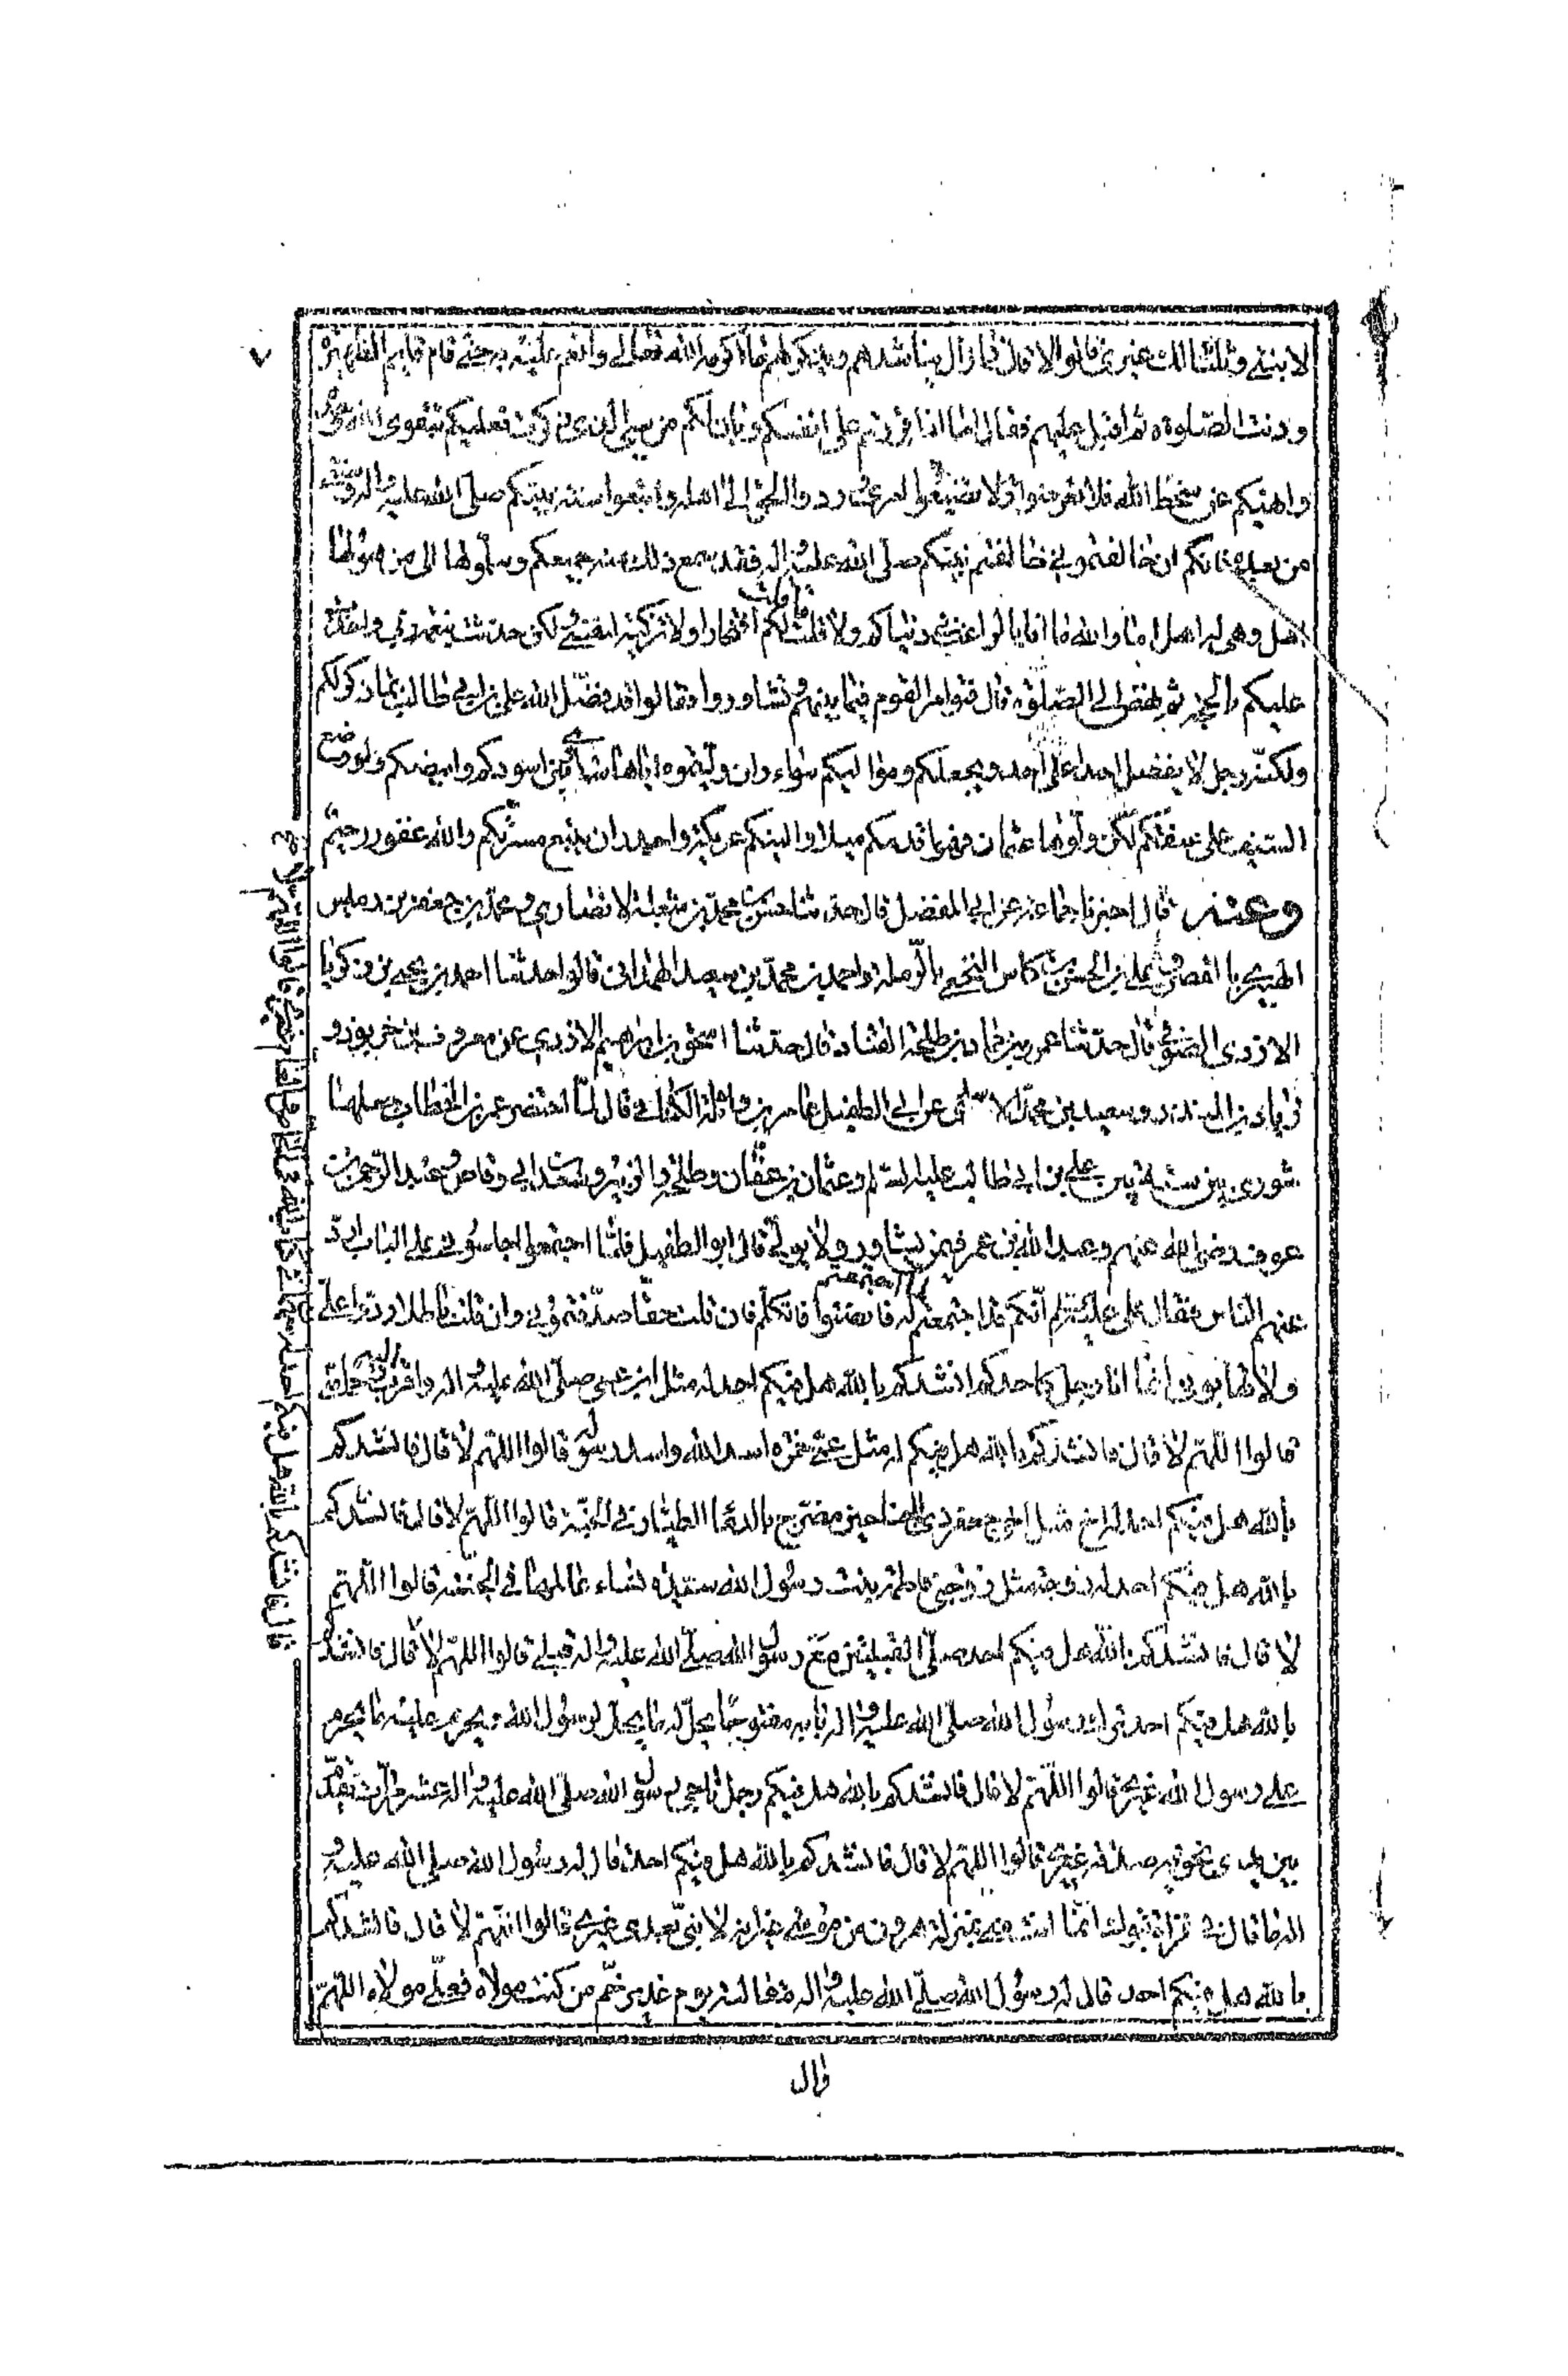 لابنتي وثلثا لك غيري قالوا لا قال فما زال يناشدهم ويذكر لهم ما اكرمه الله تعالى وانعم عليه به حتى قام قايم الظهيرة
ودنت الصلوة ثم اقبل عليهم فقال اما اذا اقررتم على انفسكم وبان لكم من سببي الذي ذكرت فعليكم بتقوى الله وحده
وانهيكم عن سخط الله فلا تعرضوا ولا تضيعوا امري وردوا الحق الى اهله واتبعوا سنة نبيكم صلى الله عليه واله وسنتي
من بعده فانكم ان خالفتموني خالفتم نبيكم صلى الله عليه واله فقد سمع ذلك منه جميعكم وسلموها الى من هو لها
اهل وهي له اهل اما والله ما انا بالراغب في دنياكم ولا قلت ما قلت لكم افتخارا ولا تزكية لنفسي ولكن حدثت بنعمة ربي واخذت
عليكم بالحجة ثم نهض الى الصلوة قال فتوامر القوم فيما بينهم وتشاوروا فقالوا قد فضل الله علي بن ابي طالب بما ذكر لكم
ولكنه رجل لا يفضل احدا على احد ويجعلكم ومواليكم سواء وان وليتموه اياها ساوى بين اسودكم وابيضكم ولو وضع
السيف على عنقكم لكن ولوها عثمان فهو اقدمكم ميلادا والينكم عريكة واجدر ان يتبع مسرتكم والله غفور رحيم
وعنه قال اخبرنا جماعة عن ابي المفضل قال حدثنا حسن بن محمد بن شعبة الانصاري ومحمد بن جعفر بن رميس
الهبيري بالقصر وعلي بن الحسين بن كاس النخعي بالرملة واحمد بن محمد بن سعيد الهمداني قالوا حدثنا احمد بن يحيى بن زكريا
الازدي الصوفي قال حدثنا عمرو بن حماد بن طلحة القناد قال حدثنا اسحق بن ابراهيم الازدي عن معروف بن خربوذ و
زياد بن المنذر وسعيد بن محمد الاسلمي عن ابي الطفيل عامر بن واثلة الكناني قال لما احتضر عمر بن الخطاب جعلها
شورى بين ستة بين علي بن ابي طالب عليه السلم وعثمان بن عفان وطلحة والزبير وسعد بن ابي وقاص وعبد الرحمن بن
عوف رضى الله عنهم وعبد الله بن عمر فيمن يشاور ولا يولى قال ابو الطفيل فلما اجتمعوا اجلسوني على الباب ارد
عنهم الناس فقال علي عليه السلم انكم قد اجتمعتم لما اجتمعتم له فانصتوا فاتكلم فان قلت حقا صدقتموني وان قلت باطلا ردوا علي
ولا تهابوني انما انا رجل كاحدكم انشدكم بالله هل فيكم احد له مثل ابن عمي صلى الله عليه واله واقرب اليه خلقي
قالوا اللهم لا قال فانشدكم بالله هل فيكم له مثل عمي حمزة اسد الله واسد رسوله قالوا اللهم لا قال فانشدكم
بالله هل فيكم احد له اخ مثل اخي جعفر ذي الجناحين مضرج بالدماء الطيار في الجنة قالوا اللهم لا قال فانشدكم
بالله هل فيكم احد له زوجة مثل زوجتي فاطمة بنت رسول الله سيدة نساء عالمها في الجنة قالوا اللهم
لا قال فانشدكم بالله هل فيكم احد صلى القبلتين مع رسول الله صلى الله عليه واله قبلي قالوا اللهم لا قال فانشدكم
بالله هل فيكم احد ترك رسول الله صلى الله عليه واله بابه مفتوحا يحل له ما يحل لرسول الله ويحرم عليه ما يحرم
على رسول الله غيري قالوا اللهم لا قال فانشدكم بالله هل فيكم رجل ناجى رسول الله صلى الله عليه واله عشر مرات يقدم
بين يدي نجويه صدقة غيري قالوا اللهم لا قال فانشدكم بالله هل فيكم احد قال له رسول الله صلى الله عليه و
اله ما قال في غزاة تبوك انما انت مني بمنزلة هرون من موسى غير انه لا نبي بعدي غيري قالوا اللهم لا قال فانشدكم
بالله هل فيكم احد قال له رسول الله صلى الله عليه واله مقالته يوم غدير خم من كنت مولاه فعلي مولاه اللهم
وال
قال فانشدكم بالله هل فيكم احد له غيري قالوا اللهم لا